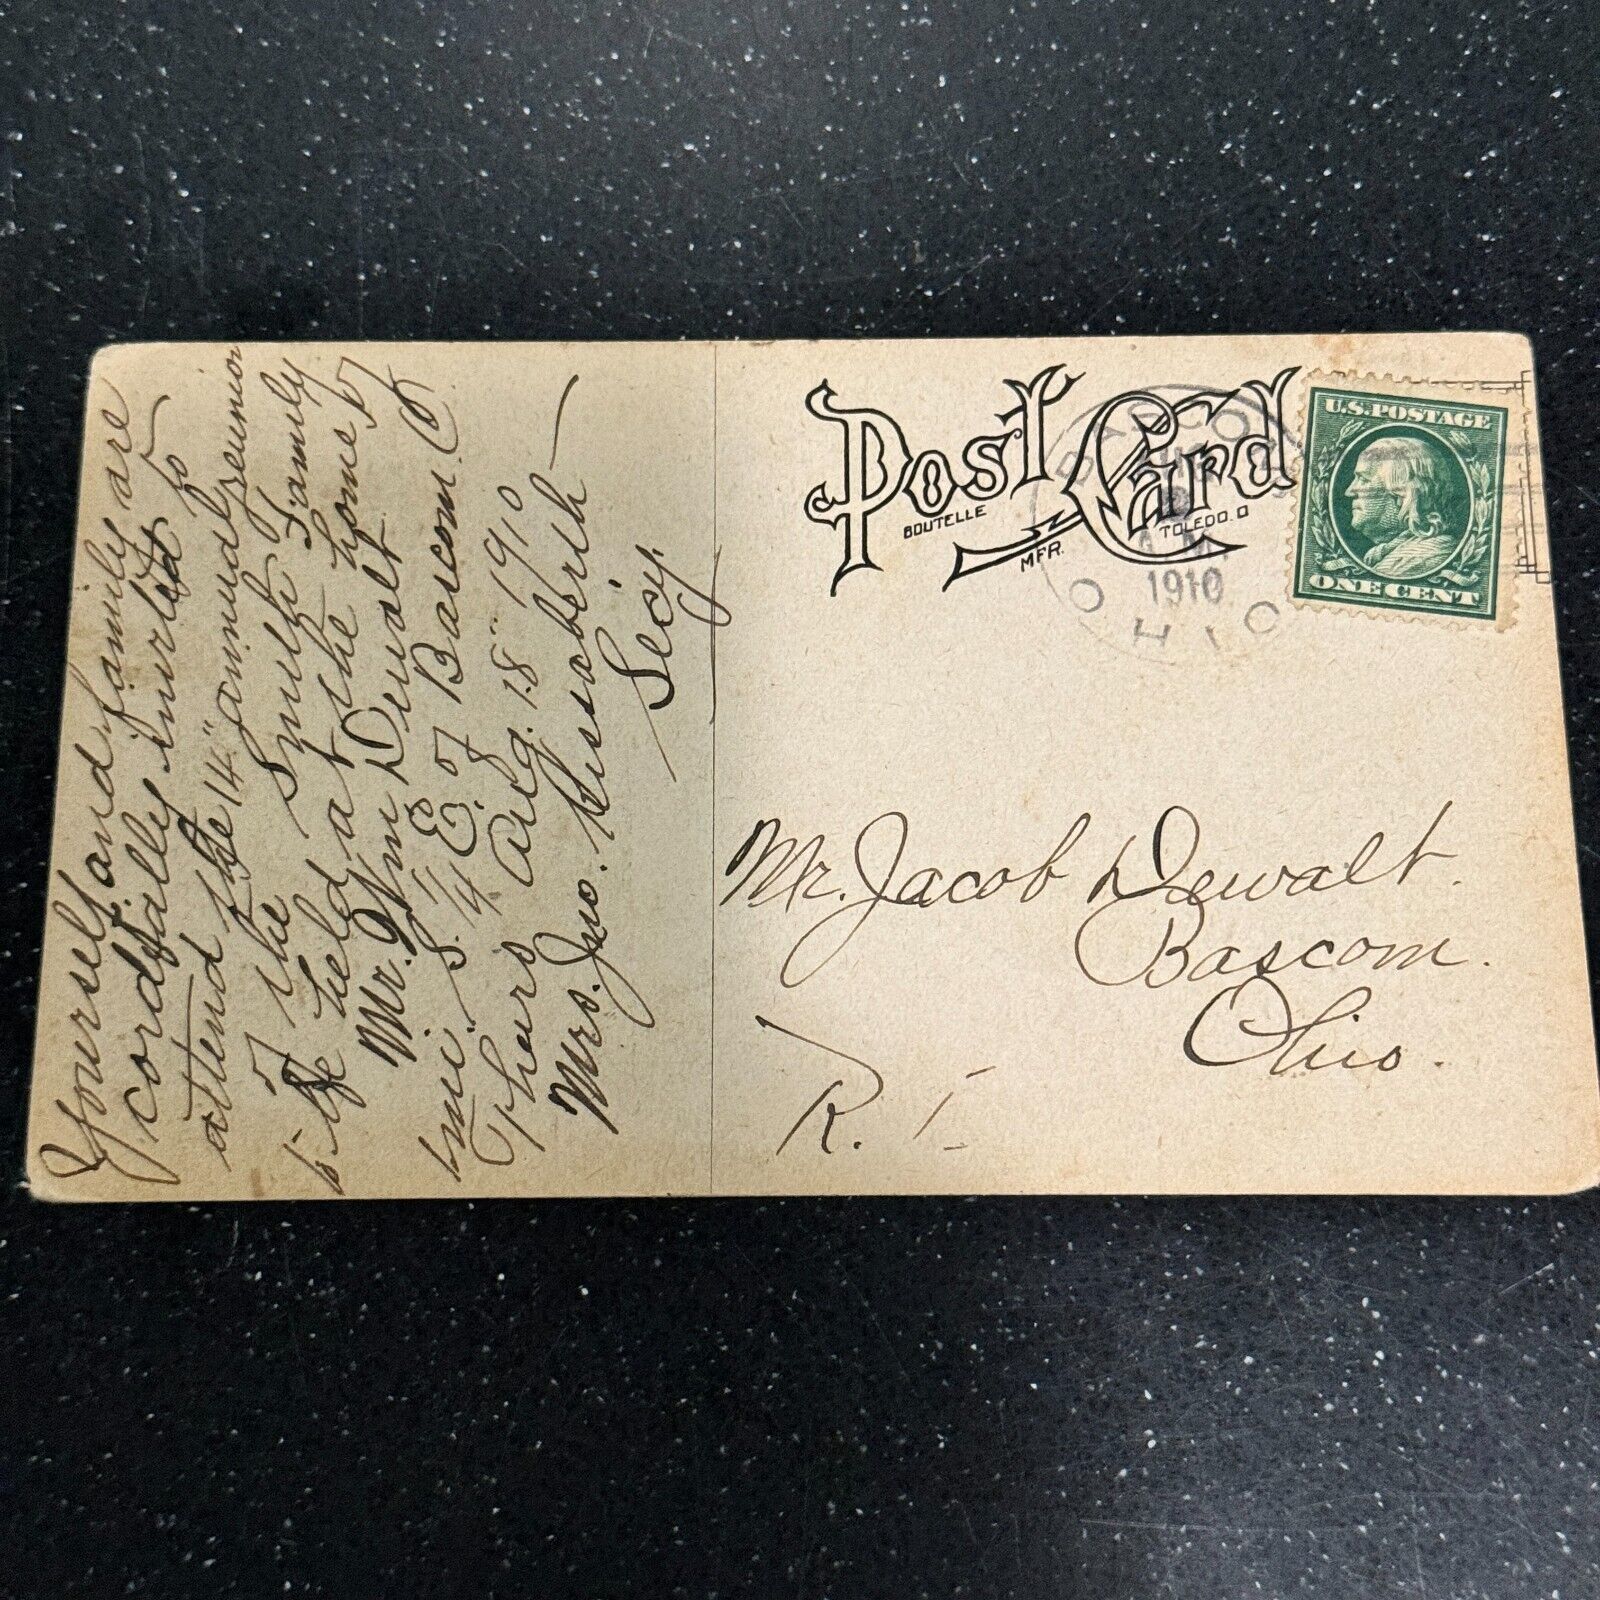 Yourself and family are
cordially invited to
attend the 14" annual reunion
of the Smith Family
to be held at the home of
Mr. Wm Dewalt
mi. S. 1/4 E. of Bascom. O
Thurs Aug. 18" 1910
Mrs. Jno.
Secy.
Post Card
BOUTELLE
MFR.
TOLEDO. O
BASCOM
1910
OHIO
U.S. POSTAGE
ONE CENT
Mr. Jacob Dewalt.
Bascom.
Ohio.
R. 1